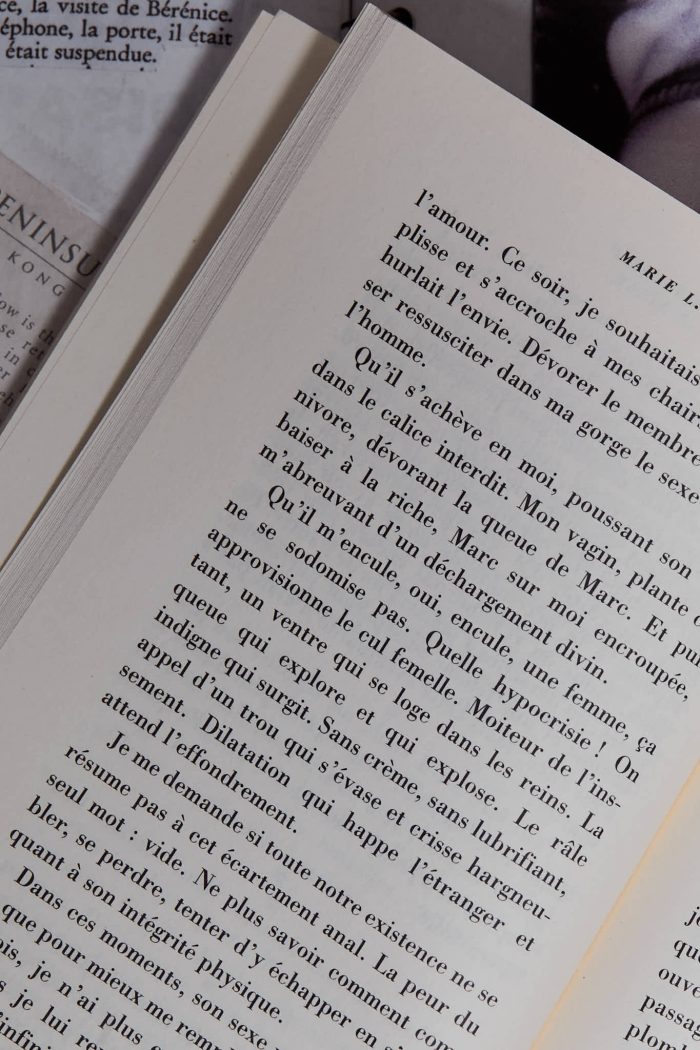 ce, la visite de Bérénice.
éphone, la porte, il était
était suspendue.
ENINSU
KONG
ow is th
se ret
in c
er
MARIE L.
l'amour. Ce soir, je souhaitais
plisse et s'accroche à mes chair
hurlait l'envie. Dévorer le membre
ser ressusciter dans ma gorge le sexe
l'homme.
Qu'il s'achève en moi, poussant son
dans le calice interdit. Mon vagin, plante c
nivore, dévorant la queue de Marc. Et pui
baiser à la riche, Marc sur moi encroupée,
m'abreuvant d'un déchargement divin.
Qu'il m'encule, oui, encule, une femme, ça
ne se sodomise pas. Quelle hypocrisie ! On
approvisionne le cul femelle. Moiteur de l'ins-
tant, un ventre qui se loge dans les reins. La
queue qui explore et qui explose. Le râle
indigne qui surgit. Sans crème, sans lubrifiant,
appel d'un trou qui s'évase et crisse hargneu-
sement. Dilatation qui happe l'étranger et
attend l'effondrement.
Je me demande si toute notre existence ne se
résume pas à cet écartement anal. La peur du
seul mot : vide. Ne plus savoir comment com
bler, se perdre, tenter d'y échapper en s
quant à son intégrité physique.
Dans ces moments, son sexe
que pour mieux me remp
ois, je n'ai plus
s je lui ren
'infini
j
que
ouve
passag
plomb